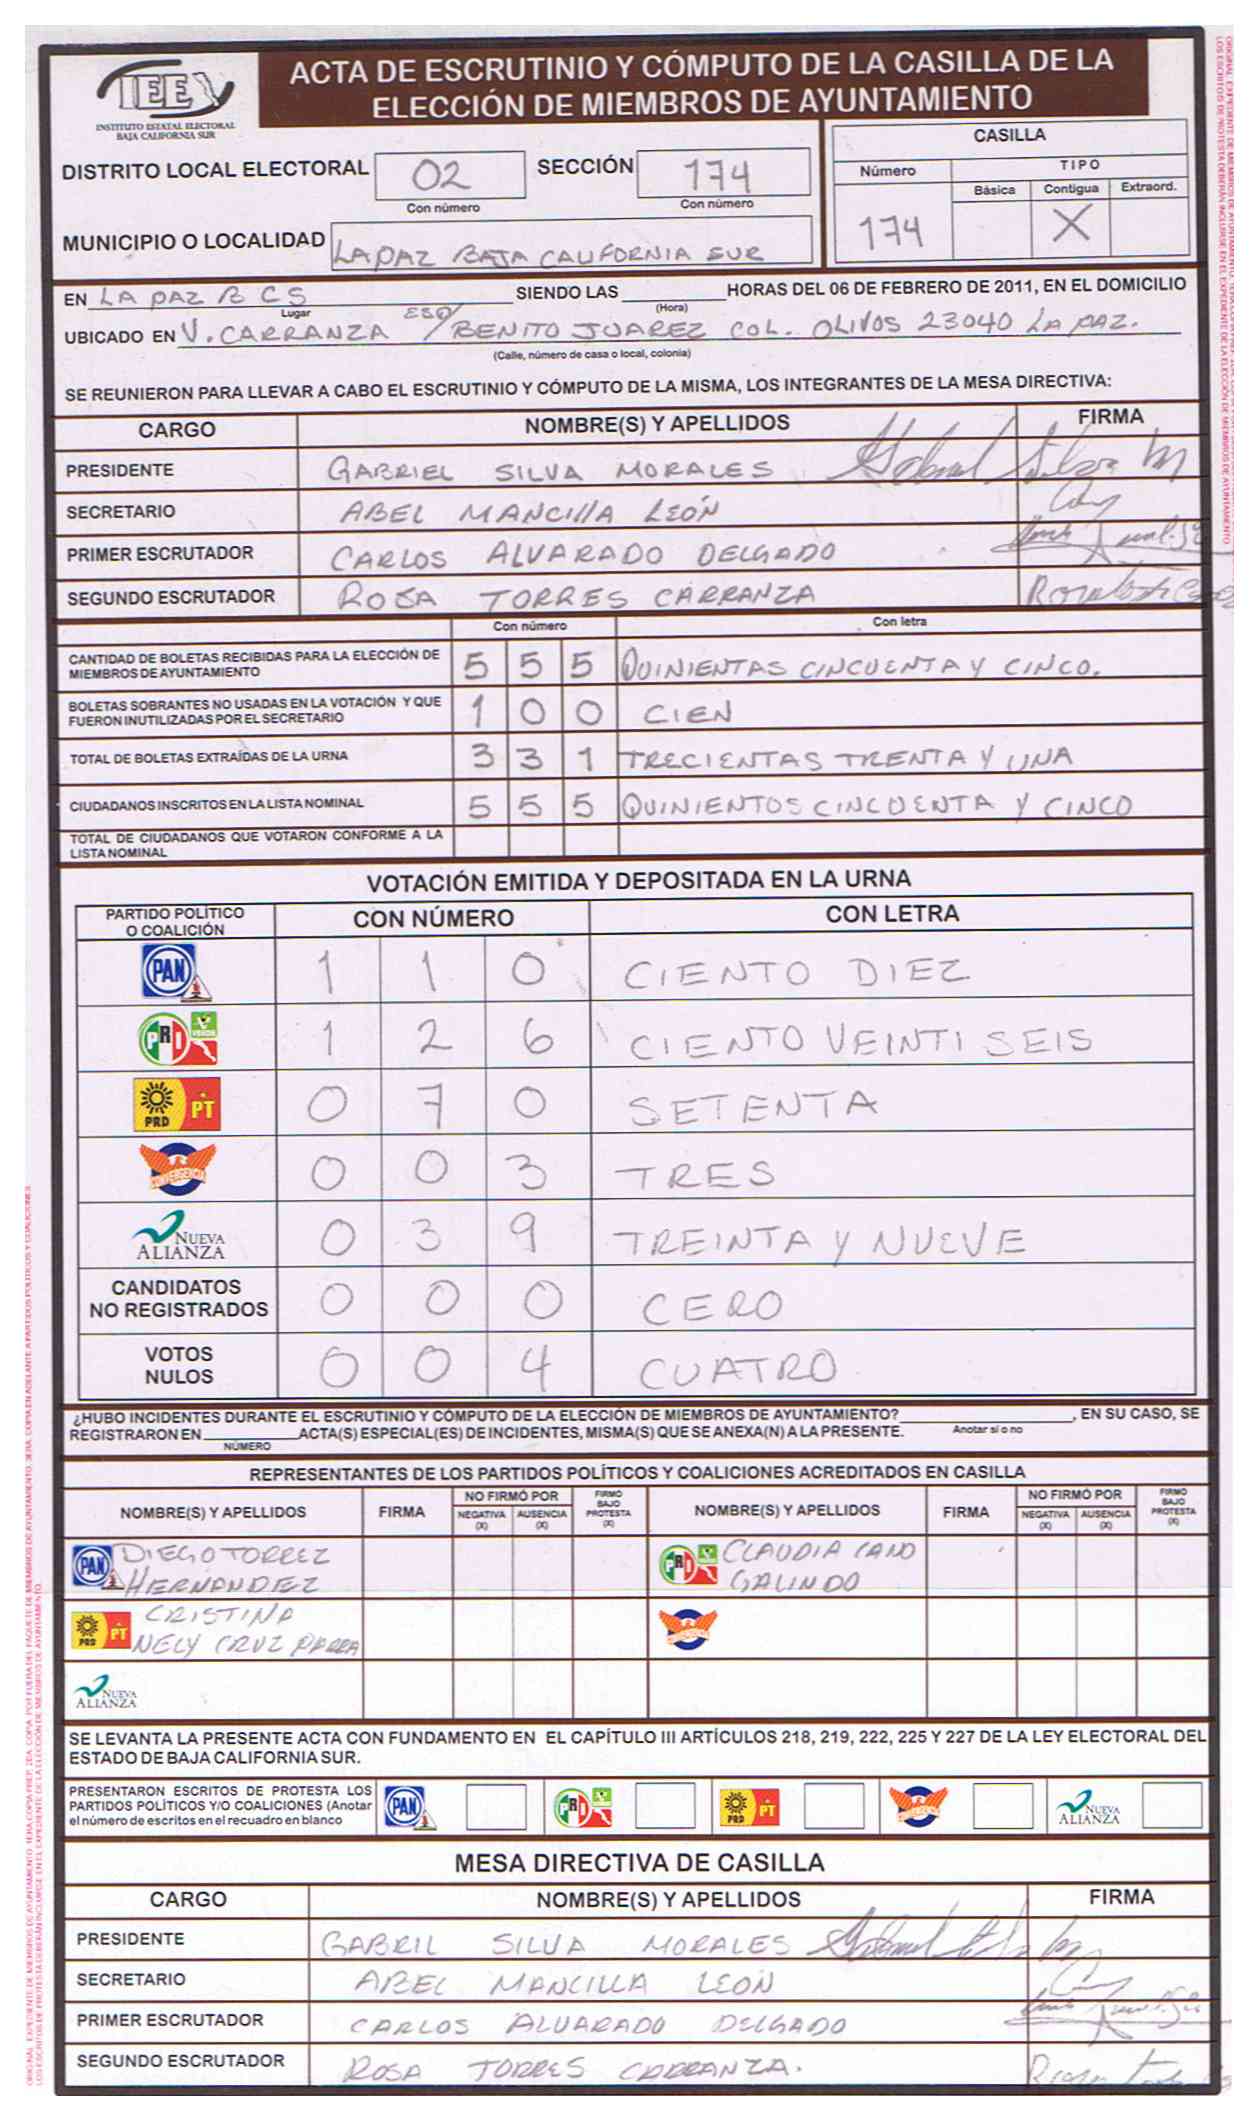 IEEBCS
INSTITUTO ESTATAL ELECTORAL
BAJA CALIFORNIA SUR
ACTA DE ESCRUTINIO Y CÓMPUTO DE LA CASILLA DE LA
ELECCIÓN DE MIEMBROS DE AYUNTAMIENTO
DISTRITO LOCAL ELECTORAL 02 SECCIÓN 174
Con número Con número
MUNICIPIO O LOCALIDAD LA PAZ BAJA CALIFORNIA SUR
CASILLA
Número TIPO
Básica Contigua Extraord.
174 X
EN LA PAZ B C S SIENDO LAS HORAS DEL 06 DE FEBRERO DE 2011, EN EL DOMICILIO
Lugar (Hora)
UBICADO EN V. CARRANZA ESQ/ BENITO JUAREZ COL. OLIVOS 23040 LA PAZ.
(Calle, número de casa o local, colonia)
SE REUNIERON PARA LLEVAR A CABO EL ESCRUTINIO Y CÓMPUTO DE LA MISMA, LOS INTEGRANTES DE LA MESA DIRECTIVA:
CARGO NOMBRE(S) Y APELLIDOS FIRMA
PRESIDENTE GABRIEL SILVA MORALES Gabriel Silva M
SECRETARIO ABEL MANCIllA LEÓN
PRIMER ESCRUTADOR CARLOS ALVARADO DELGADO
SEGUNDO ESCRUTADOR ROSA TORRES CARRANZA
Con número Con letra
CANTIDAD DE BOLETAS RECIBIDAS PARA LA ELECCIÓN DE
MIEMBROS DE AYUNTAMIENTO 5 5 5 QUINIENTAS CINCUENTA Y CINCO.
BOLETAS SOBRANTES NO USADAS EN LA VOTACIÓN Y QUE
FUERON INUTILIZADAS POR EL SECRETARIO 1 0 0 CIEN
TOTAL DE BOLETAS EXTRAÍDAS DE LA URNA 3 3 1 TRECIENTAS TRENTA Y UNA
CIUDADANOS INSCRITOS EN LA LISTA NOMINAL 5 5 5 QUINIENTOS CINCUENTA Y CINCO
TOTAL DE CIUDADANOS QUE VOTARON CONFORME A LA
LISTA NOMINAL
VOTACIÓN EMITIDA Y DEPOSITADA EN LA URNA
PARTIDO POLÍTICO
O COALICIÓN CON NÚMERO CON LETRA
PAN 1 1 0 CIENTO DIEZ
PRI VERDE 1 2 6 CIENTO VEINTI SEIS
PRD PT 0 7 0 SETENTA
CONVERGENCIA 0 0 3 TRES
NUEVA ALIANZA 0 3 9 TREINTA Y NUEVE
CANDIDATOS
NO REGISTRADOS 0 0 0 CERO
VOTOS
NULOS 0 0 4 CUATRO
¿HUBO INCIDENTES DURANTE EL ESCRUTINIO Y CÓMPUTO DE LA ELECCIÓN DE MIEMBROS DE AYUNTAMIENTO? , EN SU CASO, SE
REGISTRARON EN ACTA(S) ESPECIAL(ES) DE INCIDENTES, MISMA(S) QUE SE ANEXA(N) A LA PRESENTE. Anotar sí o no
NÚMERO
REPRESENTANTES DE LOS PARTIDOS POLÍTICOS Y COALICIONES ACREDITADOS EN CASILLA
NOMBRE(S) Y APELLIDOS FIRMA NO FIRMÓ POR NEGATIVA (X) AUSENCIA (X) FIRMÓ BAJO PROTESTA (X) NOMBRE(S) Y APELLIDOS FIRMA NO FIRMÓ POR NEGATIVA (X) AUSENCIA (X) FIRMÓ BAJO PROTESTA (X)
PAN DIEGO TORREZ HERNANDEZ PRI CLAUDIA CANO GALINDO
PRD PT CRISTINA NELY CRUZ PARRA CONVERGENCIA
NUEVA ALIANZA
SE LEVANTA LA PRESENTE ACTA CON FUNDAMENTO EN EL CAPÍTULO III ARTÍCULOS 218, 219, 222, 225 Y 227 DE LA LEY ELECTORAL DEL
ESTADO DE BAJA CALIFORNIA SUR.
PRESENTARON ESCRITOS DE PROTESTA LOS
PARTIDOS POLÍTICOS Y/O COALICIONES (Anotar
el número de escritos en el recuadro en blanco
PAN PRI PRD PT CONVERGENCIA NUEVA ALIANZA
MESA DIRECTIVA DE CASILLA
CARGO NOMBRE(S) Y APELLIDOS FIRMA
PRESIDENTE GABRIL SILVA MORALES
SECRETARIO ABEL MANCILLA LEÓN
PRIMER ESCRUTADOR CARLOS ALVARADO DELGADO
SEGUNDO ESCRUTADOR ROSA TORRES CARRANZA.